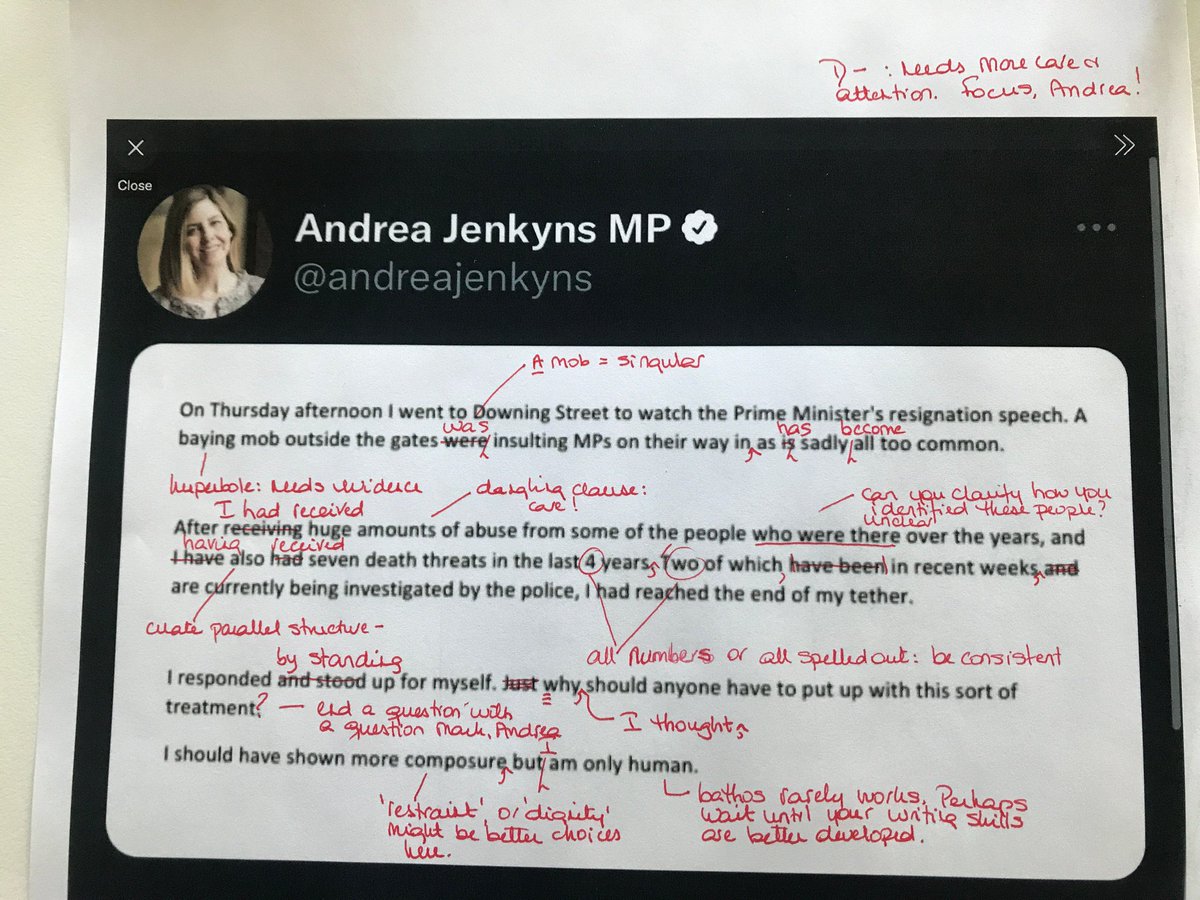 D- : Needs more care &
attention. Focus, Andrea!
Close
Andrea Jenkyns MP
@andreajenkyns
A mob = singular
On Thursday afternoon I went to Downing Street to watch the Prime Minister's resignation speech. A
was has become
baying mob outside the gates were insulting MPs on their way in, as is sadly all too common.
hyperbole: needs evidence
dangling clause:
care!
can you clarify how you
identified these people?
unclear
I had received
After receiving huge amounts of abuse from some of the people who were there over the years, and
having received
I have also had seven death threats in the last 4 years, Two of which, have been in recent weeks, and
are currently being investigated by the police, I had reached the end of my tether.
create parallel structure -
all numbers or all spelled out: be consistent
by standing
I responded and stood up for myself. Just why should anyone have to put up with this sort of
treatment?
- end a question with
a question mark, Andrea
I thought,
I
I should have shown more composure, but am only human.
'restraint', or 'dignity'
might be better choices
here.
bathos rarely works. Perhaps
wait until your writing skills
are better developed.